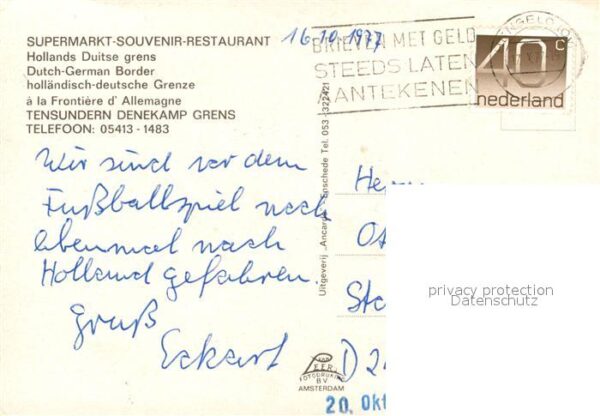 16.10.1977
SUPERMARKT-SOUVENIR-RESTAURANT
Hollands Duitse grens
Dutch-German Border
holländisch-deutsche Grenze
à la Frontière d' Allemagne
TENSUNDERN DENEKAMP GRENS
TELEFOON: 05413 - 1483
BRIEVEN MET GELD
STEEDS LATEN
AANTEKENEN
40 c
nederland
Wir sind vor dem
Fußballspiel noch
ebenmal nach
Holland gefahren.
Gruß
Eckart
Uitgeverij „Ancarda" Enschede Tel. 053 - 322421
He
Os
St
D 2
privacy protection
Datenschutz
FOTODRUK
BV
AMSTERDAM
20. Okt